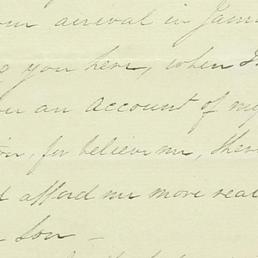 our arrival in Jam
you here, when I
an account of my
for believe me, the
afford me more rea
Son —